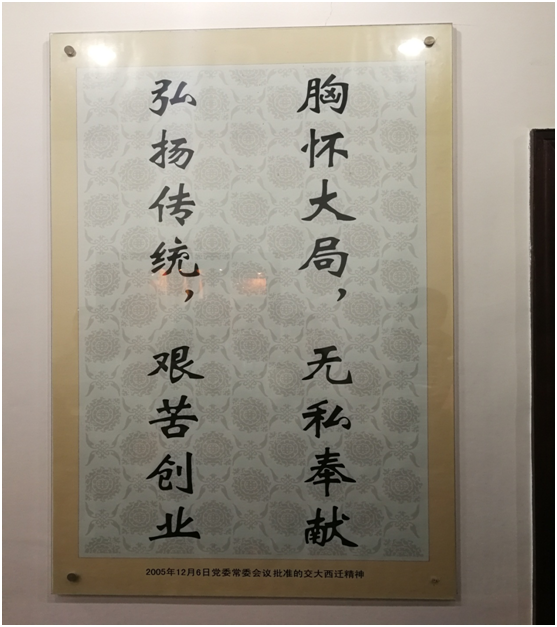 胸怀大局，无私奉献
弘扬传统，艰苦创业
2005年12月6日党委常委会议批准的交大西迁精神